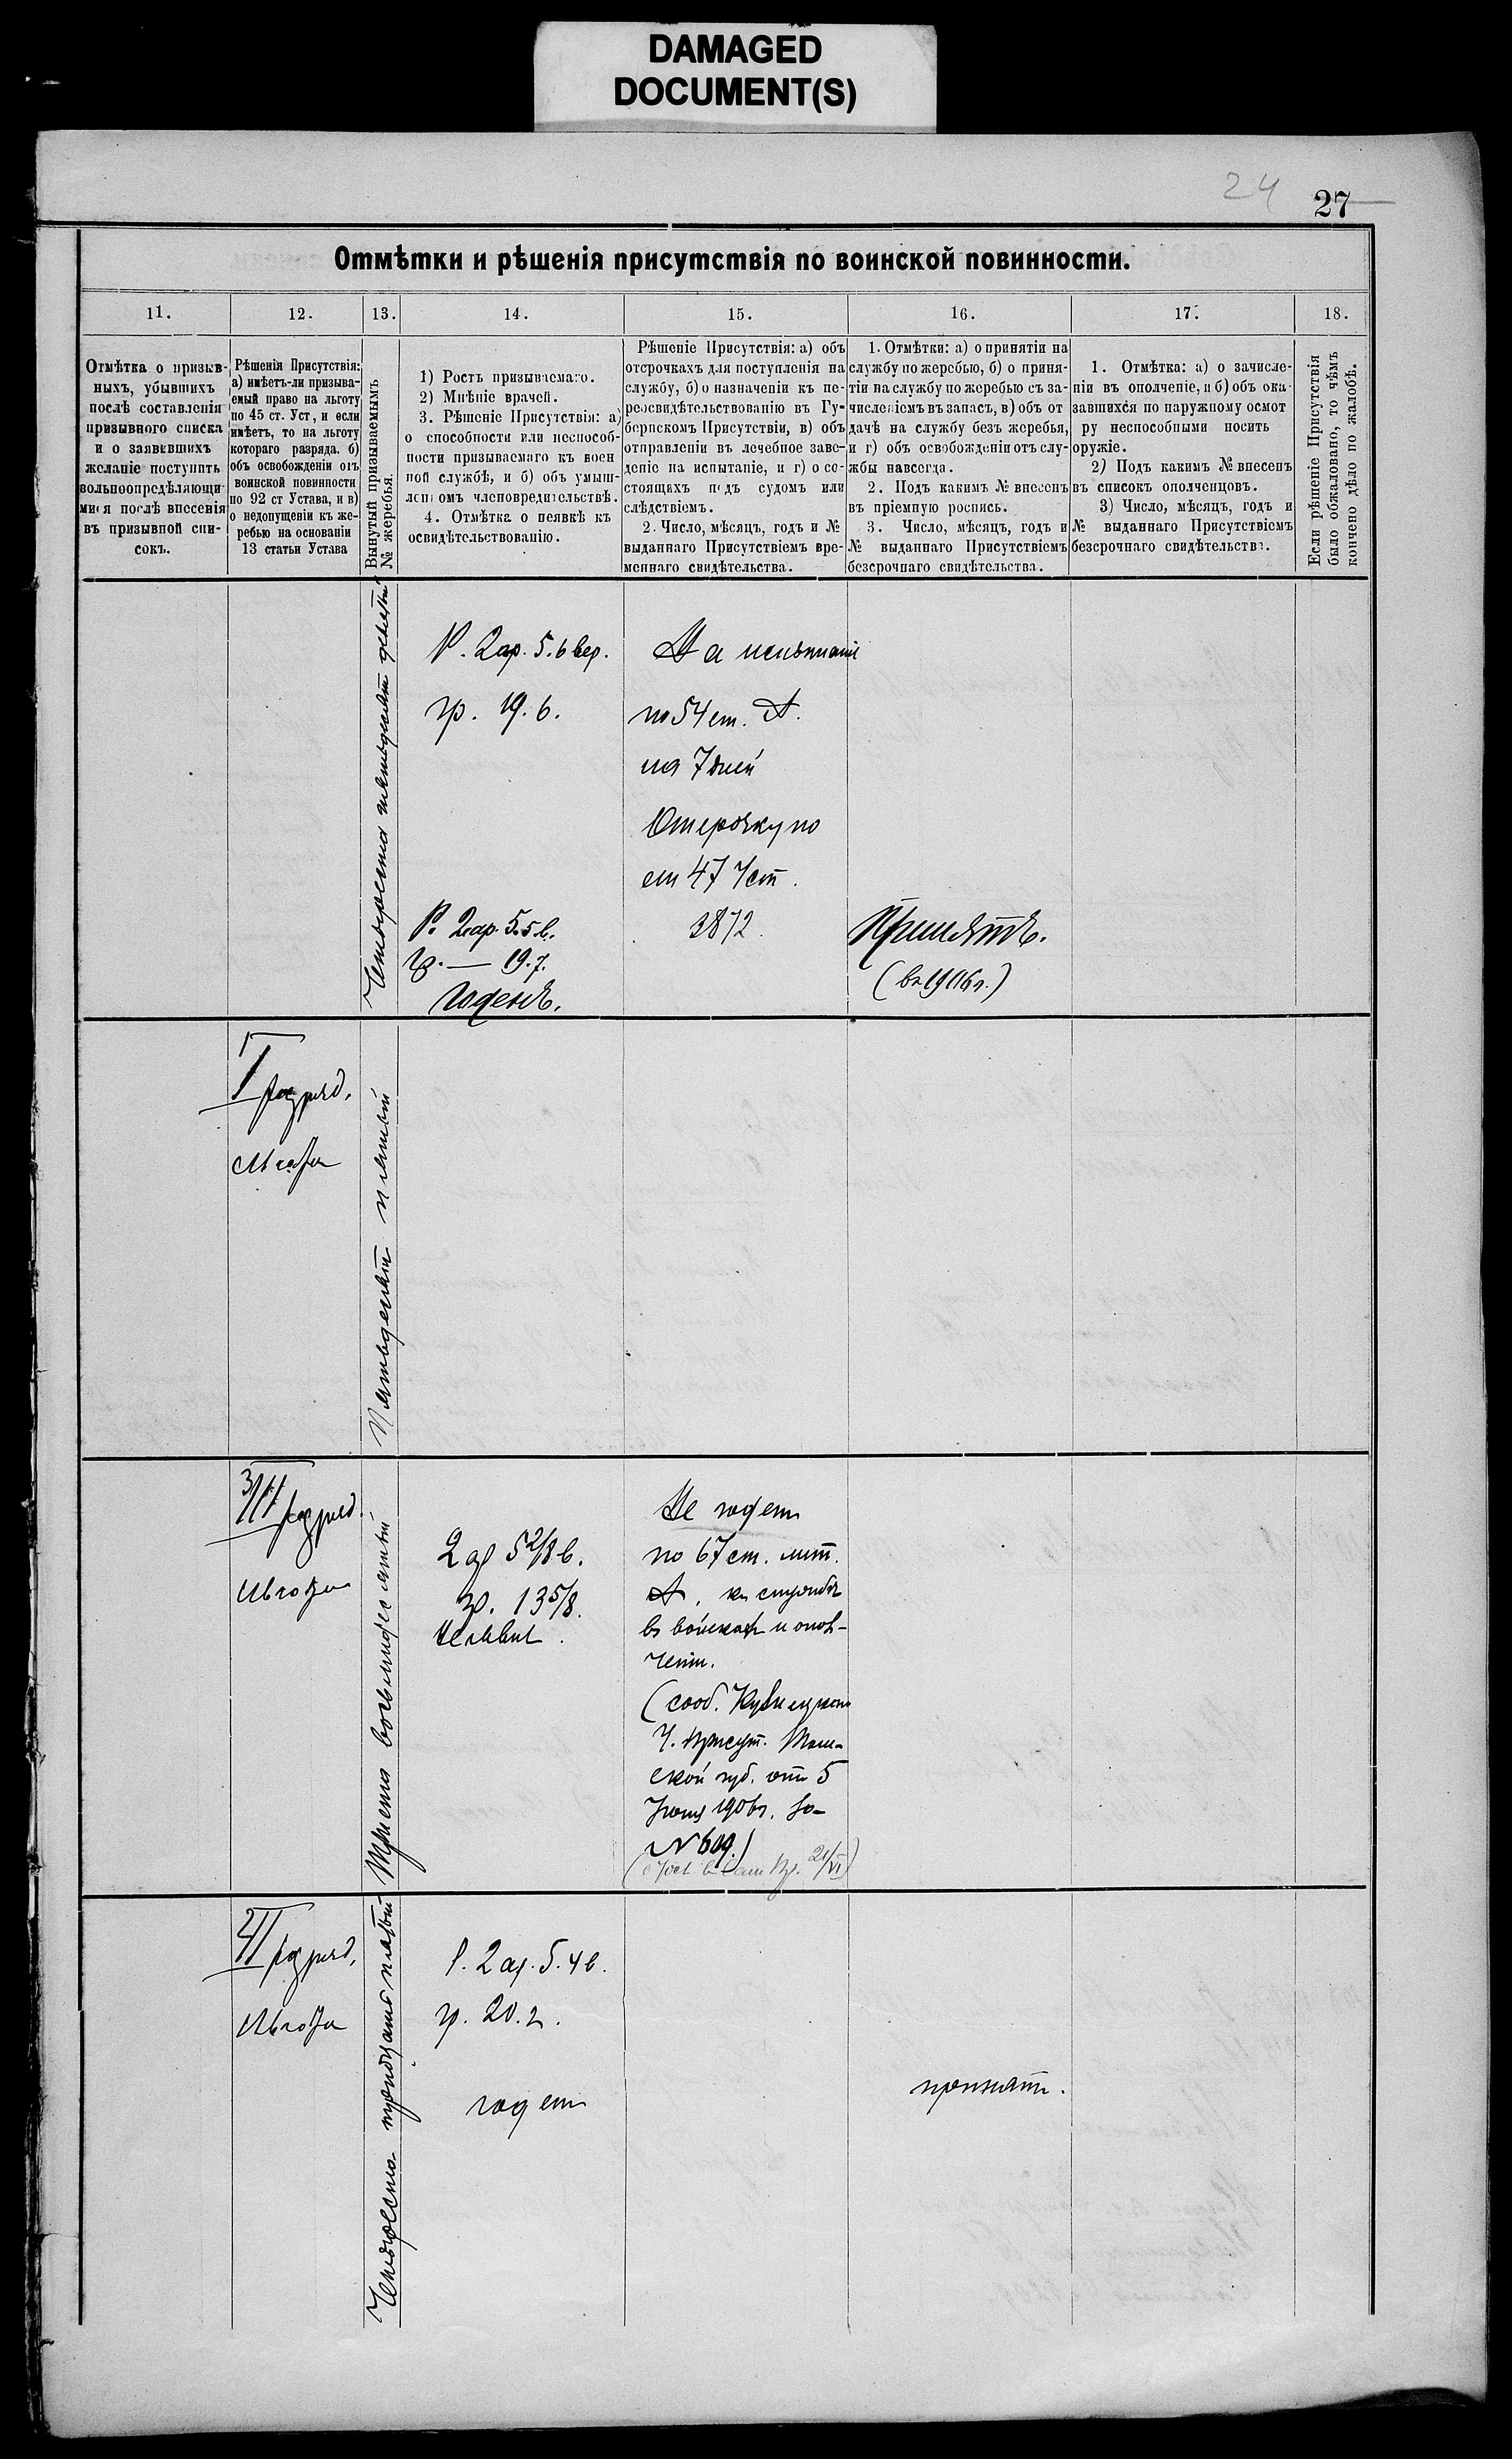 DAMAGED
DOCUMENT(S)
24
27
Отмѣтки и рѣшенія присутствія по воинской повинности.
11.
12.
13.
14.
15.
16.
17.
18.
Отмѣтка о призыв-
ныхъ, убывшихъ
послѣ составленія
призывного списка
и о заявевшихъ
желаніе поступить
вольноопредѣляющи-
мися послѣ внесенія
въ призывной спи-
сокъ.
Рѣшенія Присутствія:
а) имѣетъ-ли призыва-
емый право на льготу
по 45 ст. Уст, и если
имѣетъ, то на льготу
котораго разряда. б)
объ освобожденіи отъ
воинской повинности
по 92 ст Устава, и в)
о недопущеніи къ же-
ребью на основаніи
13 статьи Устава
Вынутый призываемымъ
№ жеребья.
1) Ростъ призываемаго.
2) Мнѣніе врачей.
3. Рѣшеніе Присутствія: а)
о способности или неспособ-
ности призываемаго къ воен
ной службѣ, и б) объ умыш-
леномъ членовредительствѣ.
4. Отмѣтка о неявкѣ къ
освидѣтельствованію.
Рѣшеніе Присутствія: а) объ
отсрочкахъ для поступленія на
службу, б) о назначеніи къ пе-
реосвидѣтельствованію въ Гу-
бернскомъ Присутствіи, в) объ
отправленіи въ лечебное заве-
деніе на испытаніе, и г) о со-
стоящихъ подъ судомъ или
слѣдствіемъ.
2. Число, мѣсяцъ, годъ и №
выданнаго Присутствіемъ вре-
меннаго свидѣтельства.
1. Отмѣтки: а) о принятіи на
службу по жеребью, б) о приня-
тіи на службу по жеребью съ за-
численіемъ въ запасъ, в) объ от
дачѣ на службу безъ жеребья,
и г) объ освобожденіи отъ слу-
жбы навсегда.
2. Подъ какимъ № внесенъ
въ пріемную роспись.
3. Число, мѣсяцъ, годъ и
№ выданнаго Присутствіемъ
безсрочнаго свидѣтельства.
1. Отмѣтка: а) о зачисле-
ніи въ ополченіе, и б) объ ока-
завшихся по наружному осмот
ру неспособными носить
оружіе.
2) Подъ какимъ № внесенъ
въ списокъ ополченцовъ.
3) Число, мѣсяцъ, годъ и
№ выданнаго Присутствіемъ
безсрочнаго свидѣтельства.
Если рѣшеніе Присутствія
было обжаловано, то чѣмъ
кончено дѣло по жалобѣ.
Четыреста шестьдесят девятый
Р. 2 ар. 5.6 вер.
гр. 19.6.
Р. 2 ар. 5.5 в.
гр. — 19.7.
годенъ.
На испытаніе
по 54 ст. А.
на 7 дней
Отсрочку по
ст 47 Уст.
3872.
Принятъ.
(въ 1906 г.)
I разряд.
льгота
Пятьдесят пятый
3
III разряд.
льгота
Триста восьмидесятый
2 ар 5 2/8 в.
гр. 13 5/8.
Не годенъ
по 67 ст. лит.
А, къ службѣ
въ войскахъ и опол-
ченіи.
(сооб. Кузнецкаго
У. присут. Том-
ской губ. отъ 5
Іюня 1906 г. за
№ 609.)
2
II разряд.
льгота
Четыреста тридцать пятый
Р. 2 ар. 5.4 в.
гр. 20.2.
годенъ
принятъ.